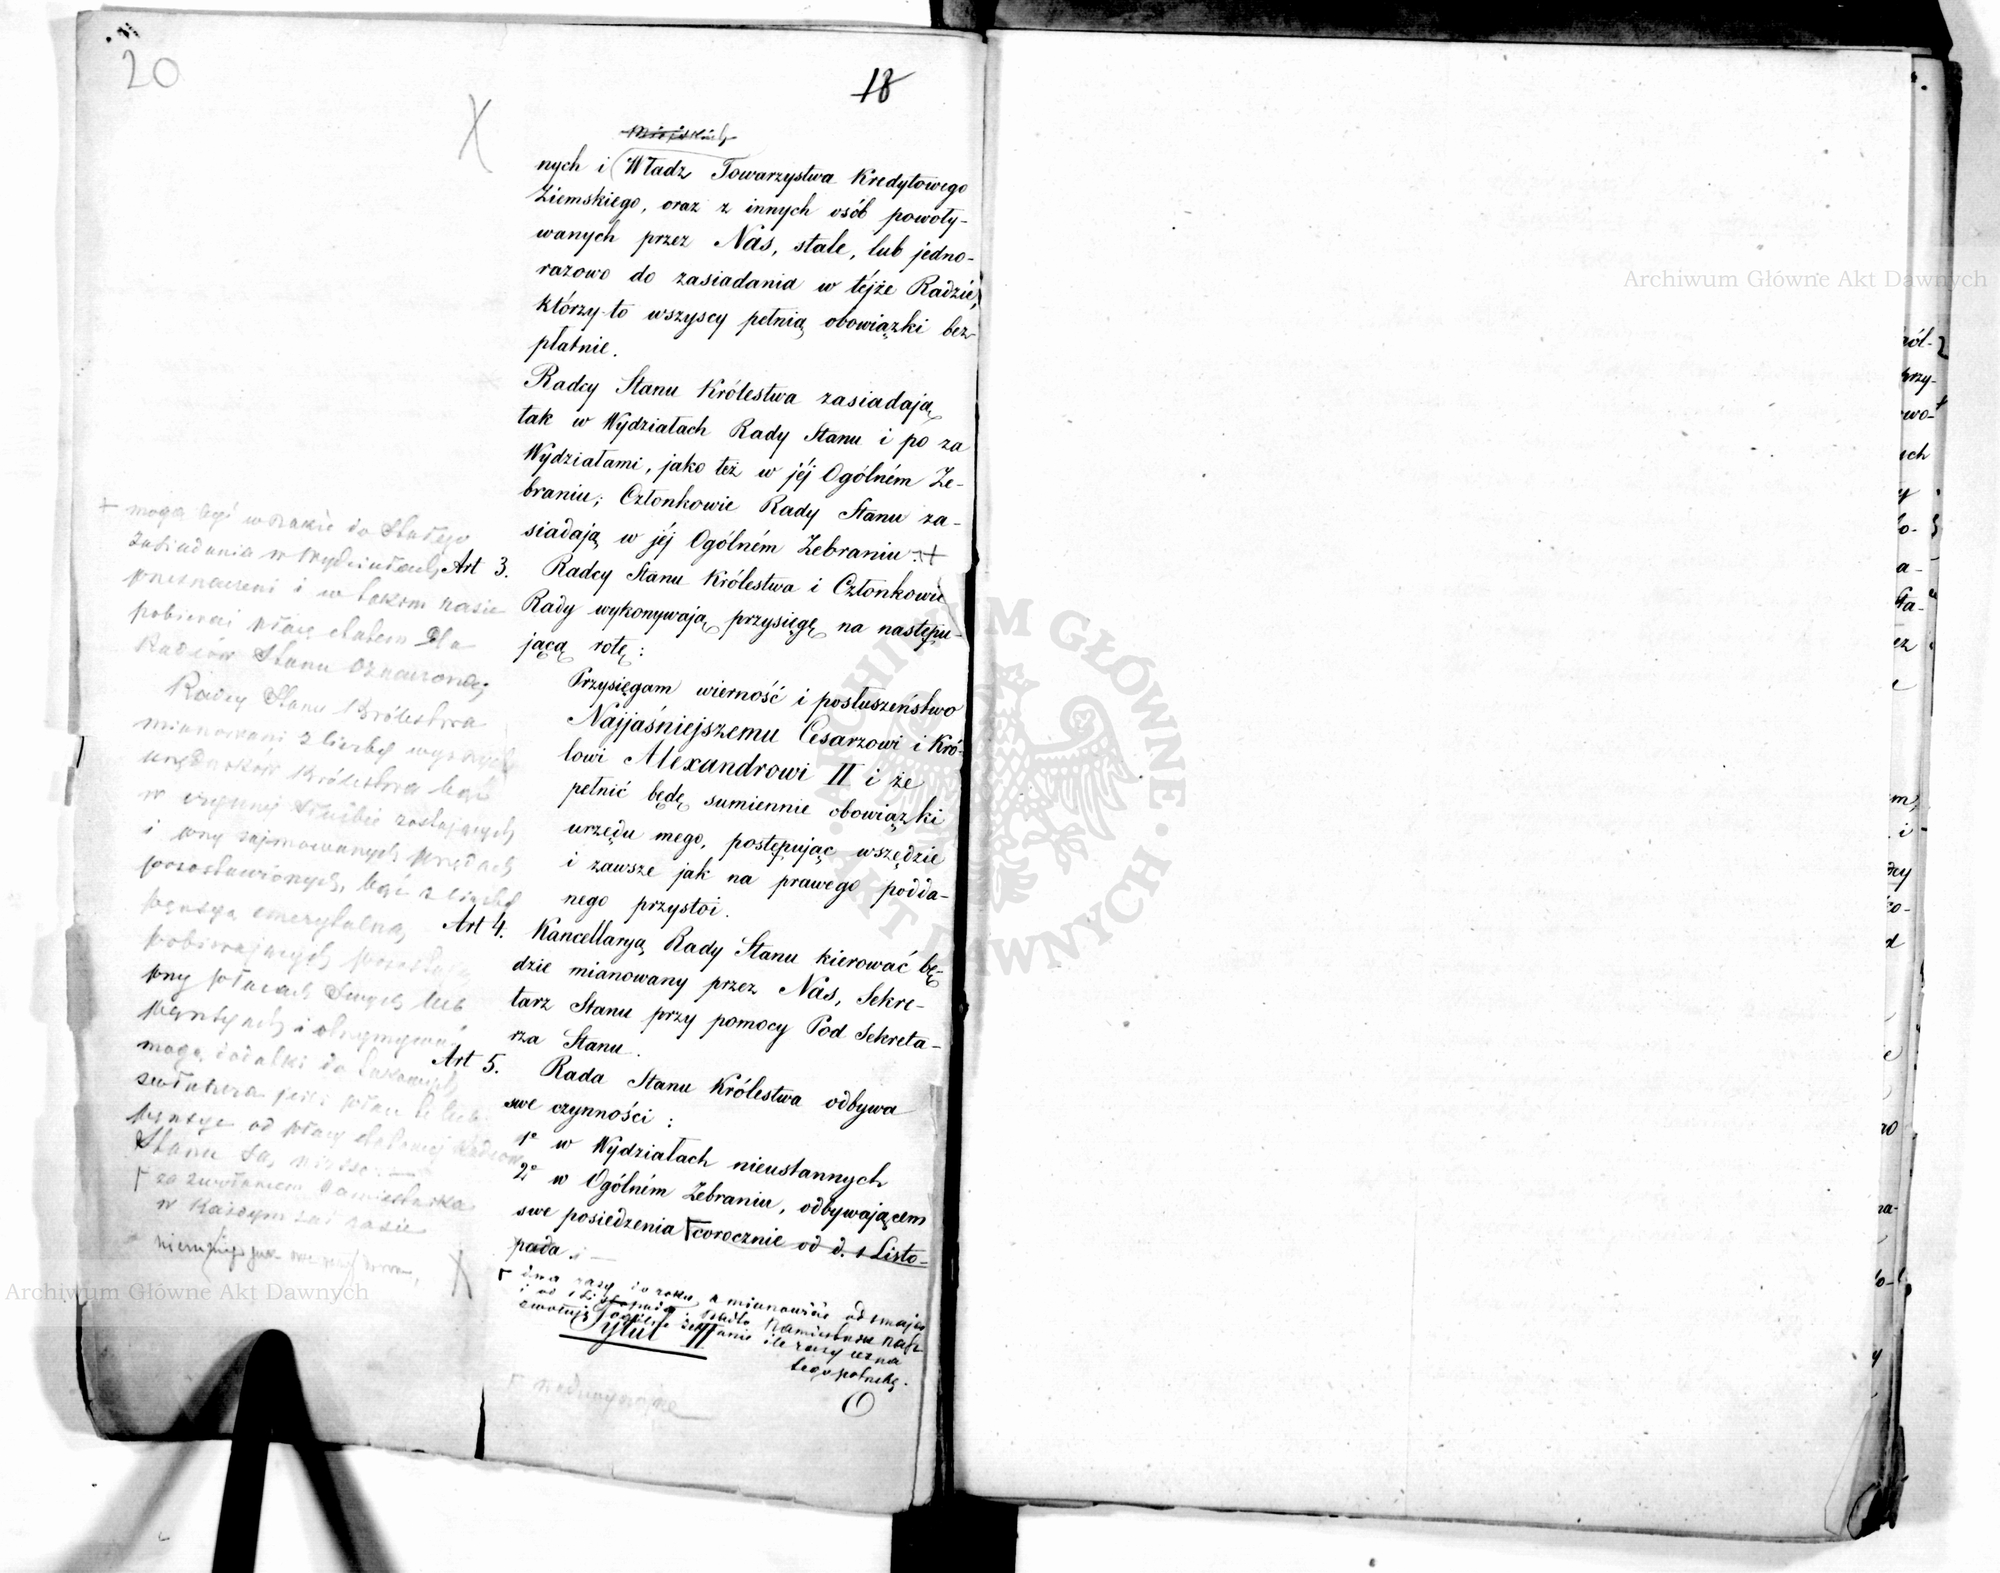 20
18
miejskich
nych i Władz Towarzystwa Kredytowego
Ziemskiego, oraz z innych osób powoły-
wanych przez Nas, stale, lub jedno-
razowo do zasiadania w téjże Radzie,
którzy-to wszyscy pełnią obowiązki bez-
płatnie.
Radcy Stanu Królestwa zasiadają
tak w Wydziałach Rady Stanu i po za
Wydziałami, jako też w jéj Ogólném Ze-
braniu; Członkowie Rady Stanu za-
siadają w jéj Ogólném Zebraniu.+
Art 3. Radcy Stanu Królestwa i Członkowie
Rady wykonywają przysięgę na następu-
jącą rotę:
Przysięgam wierność i posłuszeństwo
Najjaśniejszemu Cesarzowi i Kró-
lowi Alexandrowi II i że
pełnić będę sumiennie obowiązki
urzędu mego, postępując wszędzie
i zawsze jak na prawego podda-
nego przystoi.
Art 4. Kancellaryą Rady Stanu kierować bę-
dzie mianowany przez Nas, Sekre-
tarz Stanu przy pomocy Pod Sekreta-
rza Stanu.
Art 5. Rada Stanu Królestwa odbywa
swe czynności:
1º w Wydziałach nieustannych
2º w Ogólném Zebraniu, odbywającem
swe posiedzenia corocznie od d. 1 Listo-
pada i
dwa razy do roku, a mianowicie od 1 maja
i od 1 Listopada; Namiestnik
zwołuje ogólne Zebranie ile razy uzna
tego potrzebę.
Tytuł II
nadzwyczajne
+ mogą być wszakże do stałego
zasiadania w Wydziałach
przeznaczeni i w takim razie
pobierać płacę etatem dla
Radców Stanu oznaczoną
Radcy Stanu Królestwa
mianowani z liczby wyższych
urzędników Królestwa bądź
w czynnej służbie zostających
i przy zajmowanych urzędach
pozostawionych, bądź z liczby
pensyą emerytalną
pobierających pozostają
przy płacach swych lub
pensyach i otrzymywać
mogą dodatki do takowych
zwłaszcza jeśli płace te lub
pensye od płacy etatowej Radców
Stanu są niższe.
za zwołaniem Namiestnika
w każdym zaś razie
Archiwum Główne Akt Dawnych
Archiwum Główne Akt Dawnych
ARCHIWUM GŁÓWNE · AKT DAWNYCH ·